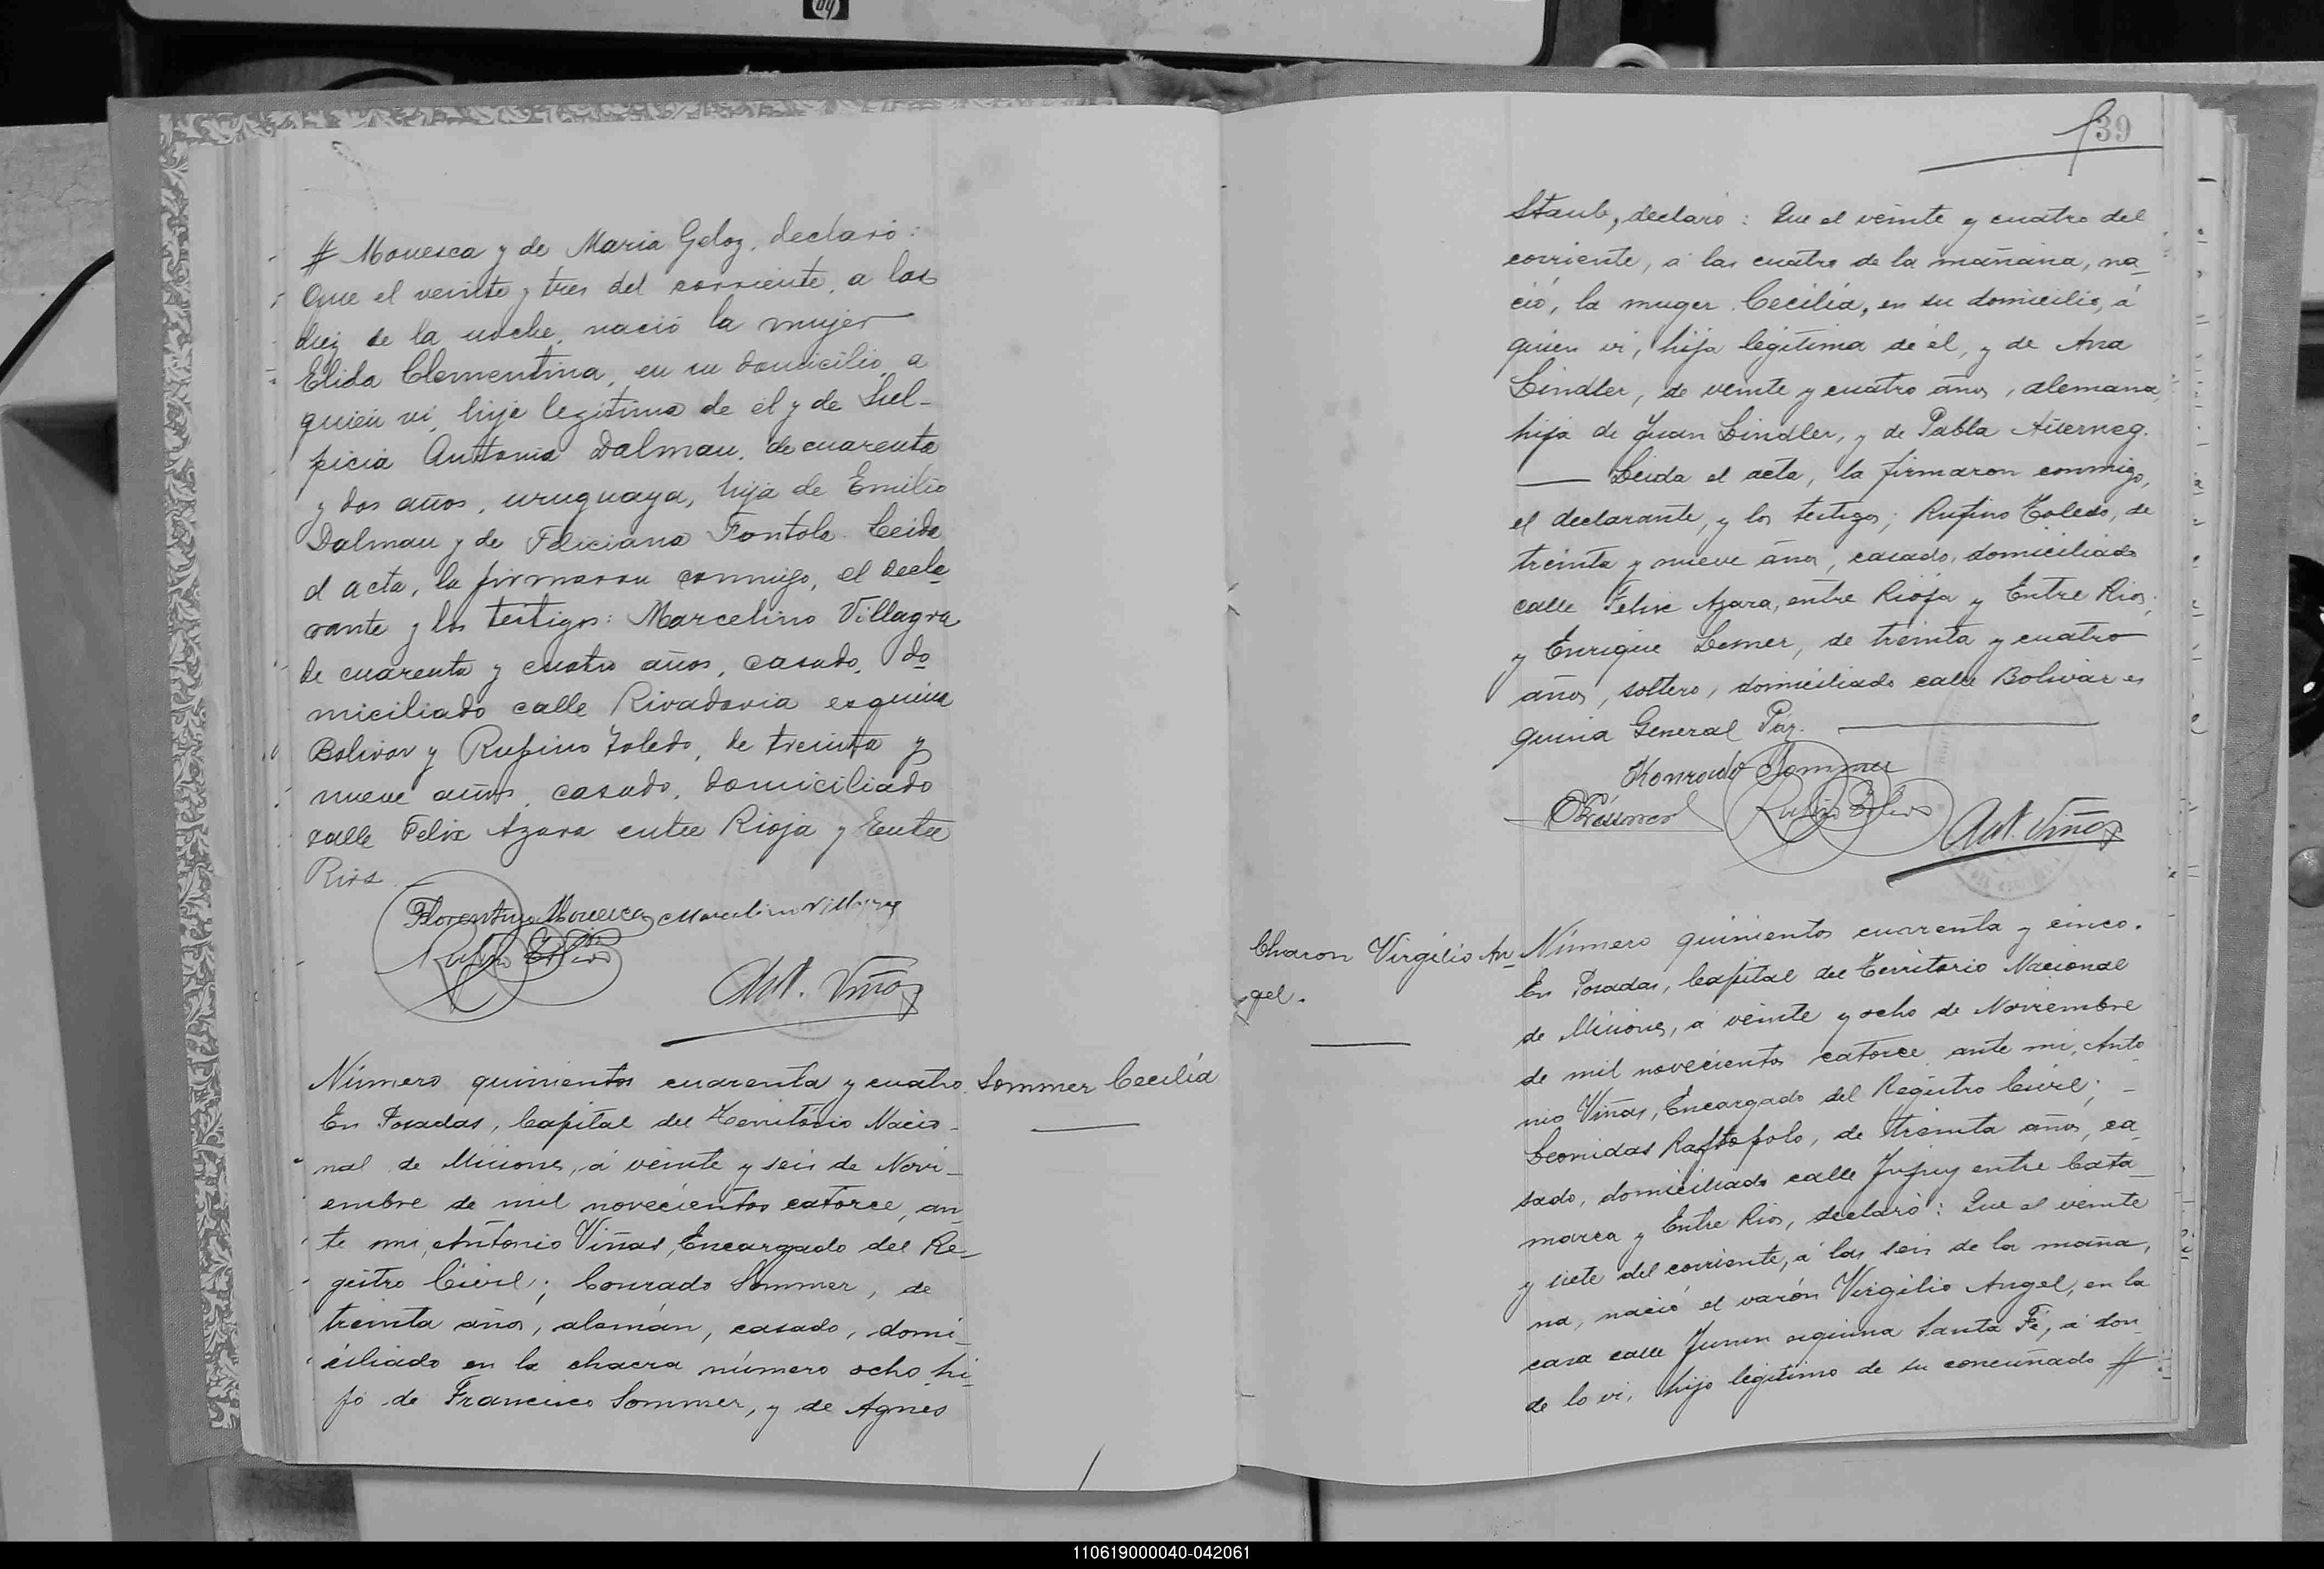 # Mouesca y de Maria Geloz, declaró:
Que el veinte y tres del corriente, a las
diez de la noche, nació la mujer
Elida Clementina, en su domicilio, a
quien vi, hija legitima de él y de Sul-
picia Antonia Dalmau, de cuarenta
y dos años, uruguaya, hija de Emilio
Dalmau y de Feliciana Fontola. Leida
el acta, la firmaron conmigo, el decla-
rante y los testigos: Marcelino Villagra
de cuarenta y cuatro años, casado, do-
miciliado calle Rivadavia esquina
Bolivar y Rufino Toledo, de treinta y
nueve años, casado, domiciliado
calle Felix Azara entre Rioja y Entre
Rios
Florentino Mouesca Marcelino Villagra
Rufino Toledo
Ant. Viñas
Número quinientos cuarenta y cuatro. Sommer Cecilia
En Posadas, Capital del Territorio Nacio-
nal de Misiones, á veinte y seis de Novi-
embre de mil novecientos catorce, an-
te mi, Antonio Viñas, Encargado del Re-
gistro Civil; Conrado Sommer, de
treinta años, alemán, casado, domi-
ciliado en la chacra número ocho, hi-
jo de Francisco Sommer, y de Agnes
39
Staub, declaró: Que el veinte y cuatro del
corriente, á las cuatro de la mañana, na-
ció, la muger Cecilia, en su domicilio, á
quien vi, hija legitima de él, y de Ana
Lindler, de veinte y cuatro años, alemana,
hija de Juan Lindler, y de Pabla
Leida el acta, la firmaron conmigo,
el declarante, y los testigos; Rufino Toledo, de
treinta y nueve años, casado, domiciliado
calle Felix Azara, entre Rioja y Entre Rios;
y Enrique Lesner, de treinta y cuatro
años, soltero, domiciliado calle Bolivar es
quina General Paz.
Konrado Sommer
Rufino Toledo
Ant. Viñas
Charon Virgilio An-
gel.
Número quinientos cuarenta y cinco.
En Posadas, Capital del Territorio Nacional
de Misiones, á veinte y ocho de Noviembre
de mil novecientos catorce ante mi, Anto
nio Viñas, Encargado del Registro Civil; -
Leonidas Raftopolo, de treinta años, ca-
sado, domiciliado calle Jujuy entre Cata-
marca y Entre Rios, declaró: Que el veinte
y siete del corriente, á las seis de la maña-
na, nació el varón Virgilio Angel, en la
casa calle Junin esquina Santa Fé, á don-
de lo vi, hijo legitimo de su concuñado #
110619000040-042061